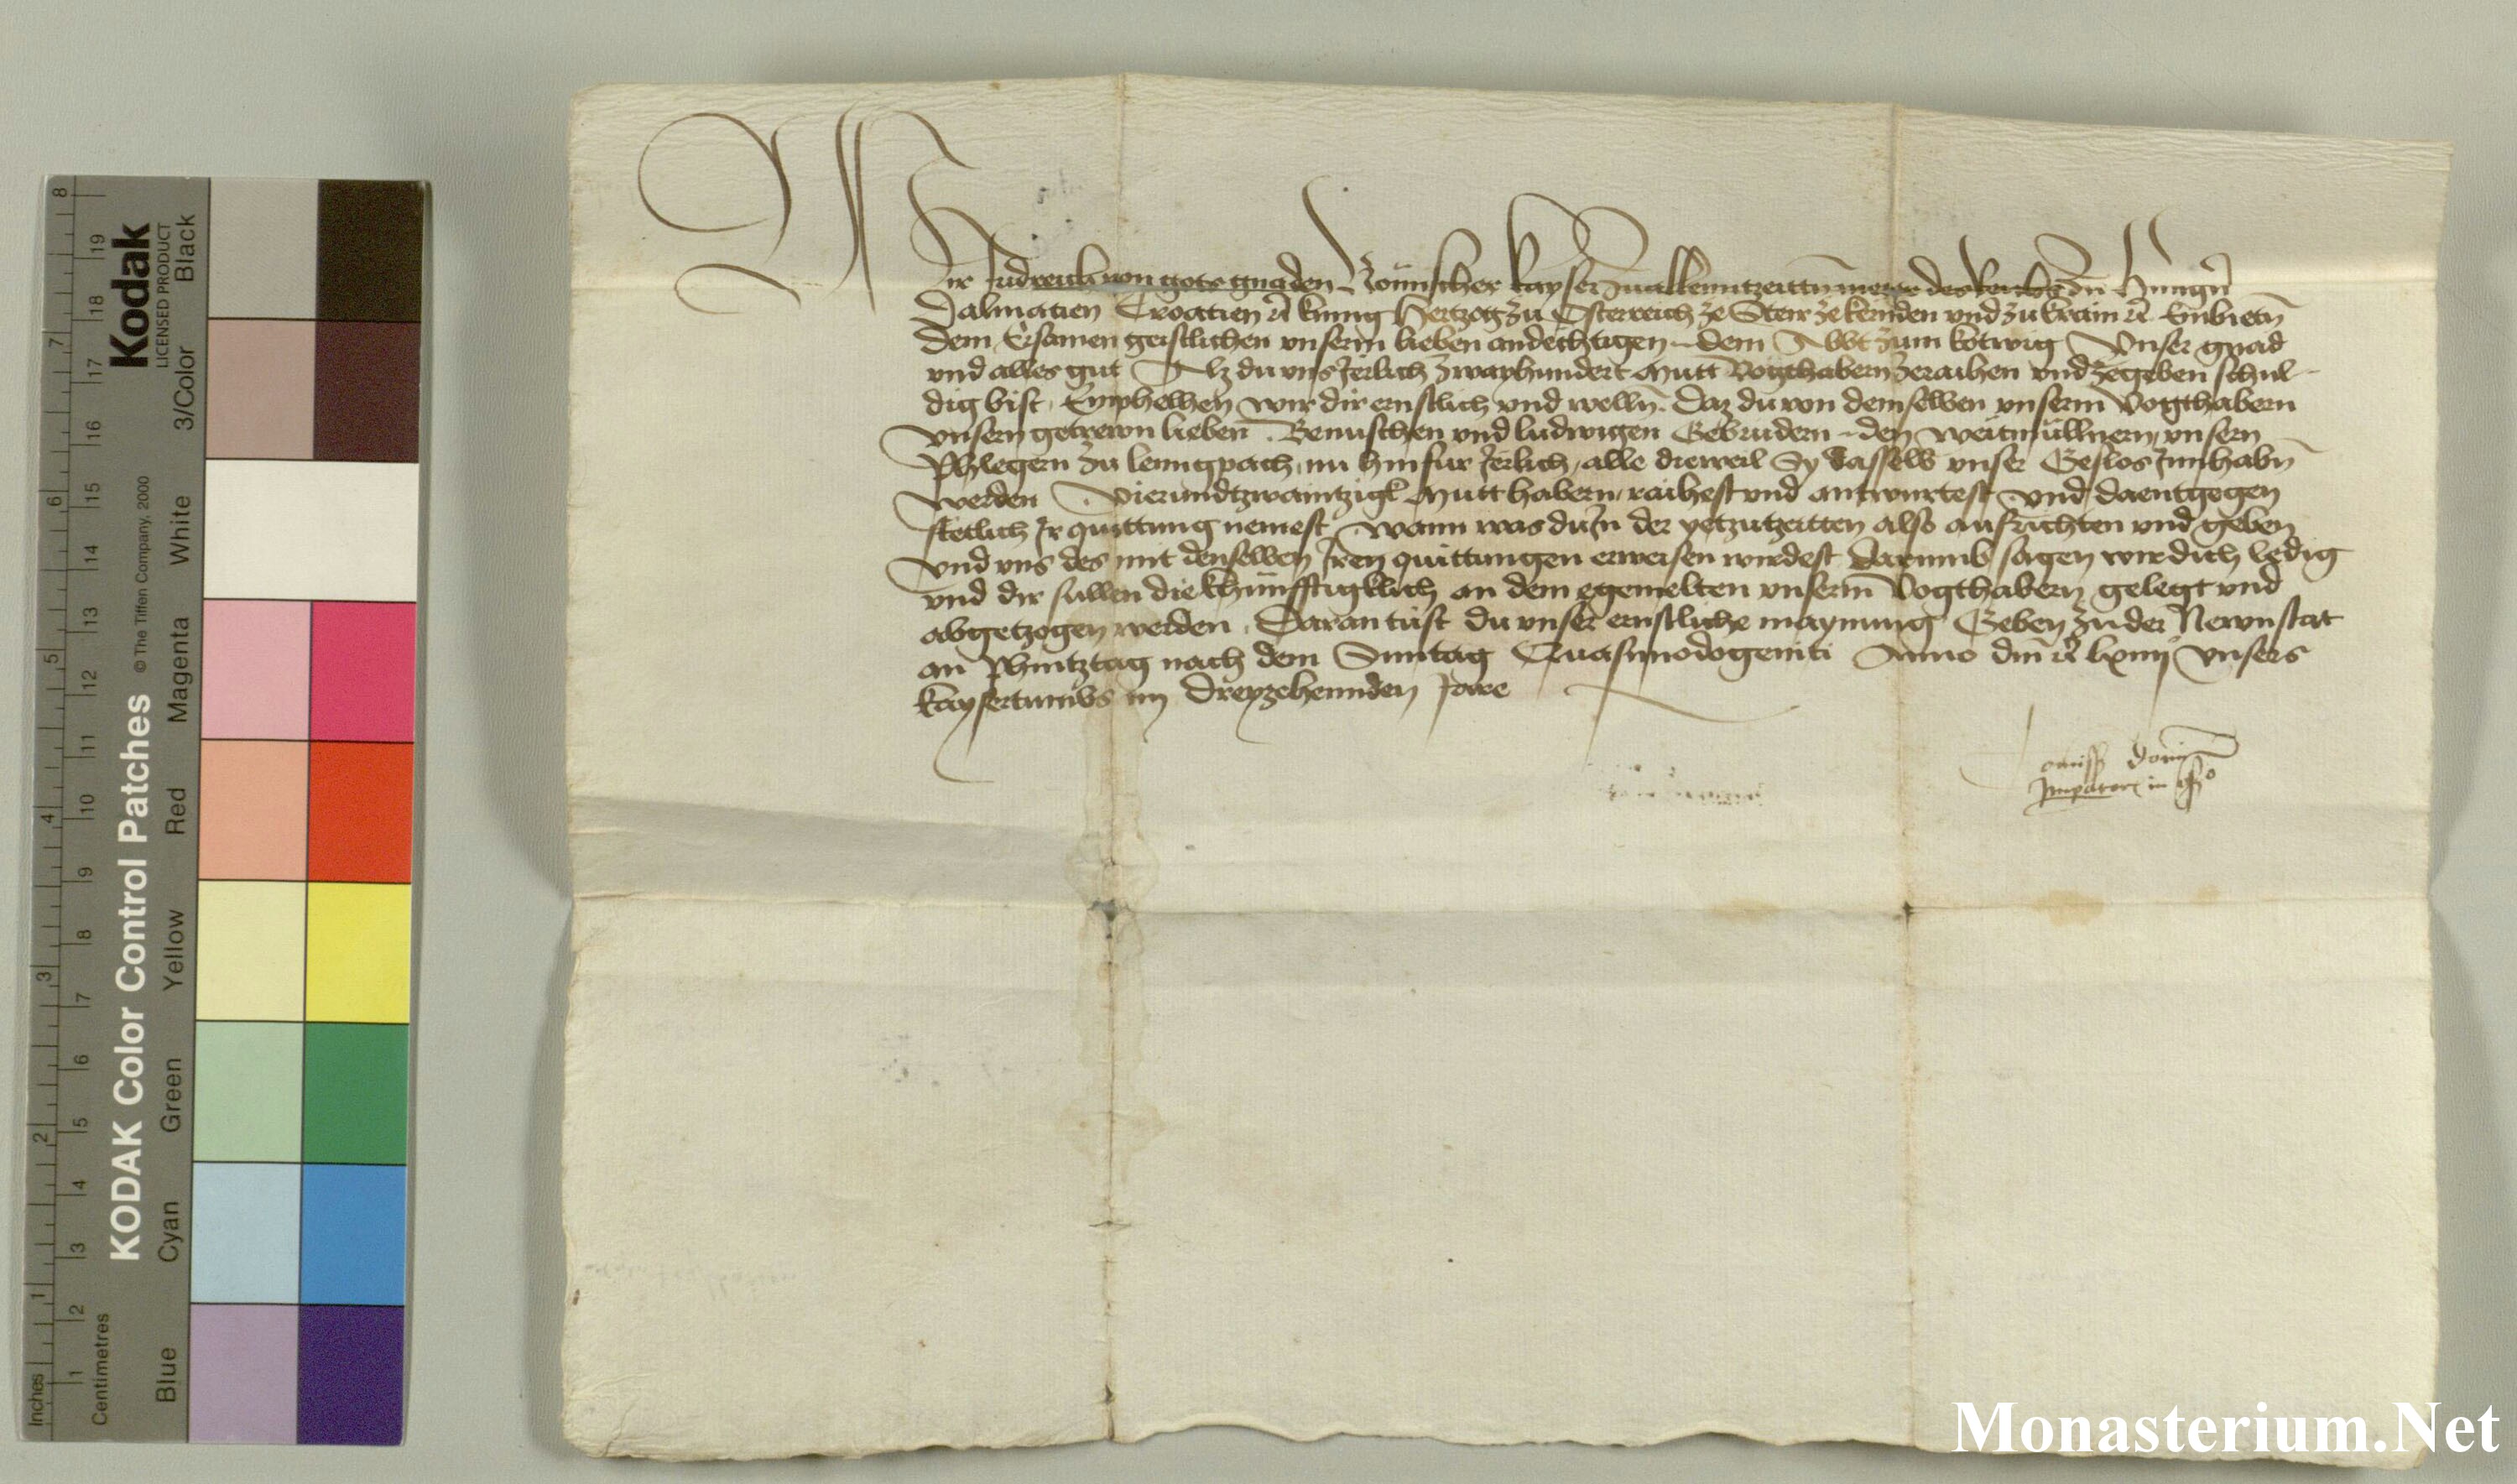 Wir Fridreich von gots gnaden Römischer kayser zuallenntzeittn merer des Reichs zu Hungern
Dalmatien Croatien ꝛc kunig Hertzog zu Österreich ze Steir ze kernden und zu krain ꝛc Embietn
dem Ersamen geistlichen unserm lieben andechtigen dem Abbt zum kotwig Unser gnad
und alles gut Als du uns Jerlich zwayhundert Mutt Vogthabern zeraihen und zegeben schul-
dig bist, Emphelhen wir dir ernstlich und welln. Daz du von demselben unserm Vogthabern
unsern getrewn lieben. Benuschen und ludwigen Gebrudern den Weitmüllnern, unsern
Phlegern zu lenngpach, nu hinfur Jerlich, alle dieweil Sy dasselb unser Geslos Innhabn
werden Vierundtzwaintzigk Mutt habern, raihest und antwurtest und daentgegen
stetlich Ir quittung nemest, wann was du In der yetzutzeitten also ausrichten und geben
und uns des mit denselben Iren quittungen erweisen wirdest Darumb sagen wir dich ledig
und dir sullen die khünfftigklich an dem egemelten unserm Vogthabern gelegt und
abgetzogen werden. Daran tust du unser ernstliche maynung Geben zu der Newnstat
an Phintztag nach dem Sunntag Quasimodogeniti Anno dm̄ ꝛc lxiiij Unsers
kaysertumbs im Dreyzehennden Jare
Comiss domi
Imperatoris in
KODAK Color Control Patches
© The Tiffen Company, 2000
Kodak
LICENSED PRODUCT
Inches 1 2 3 4 5 6 7 8
Centimetres 1 2 3 4 5 6 7 8 9 10 11 12 13 14 15 16 17 18 19
Blue Cyan Green Yellow Red Magenta White 3/Color Black
Monasterium.Net